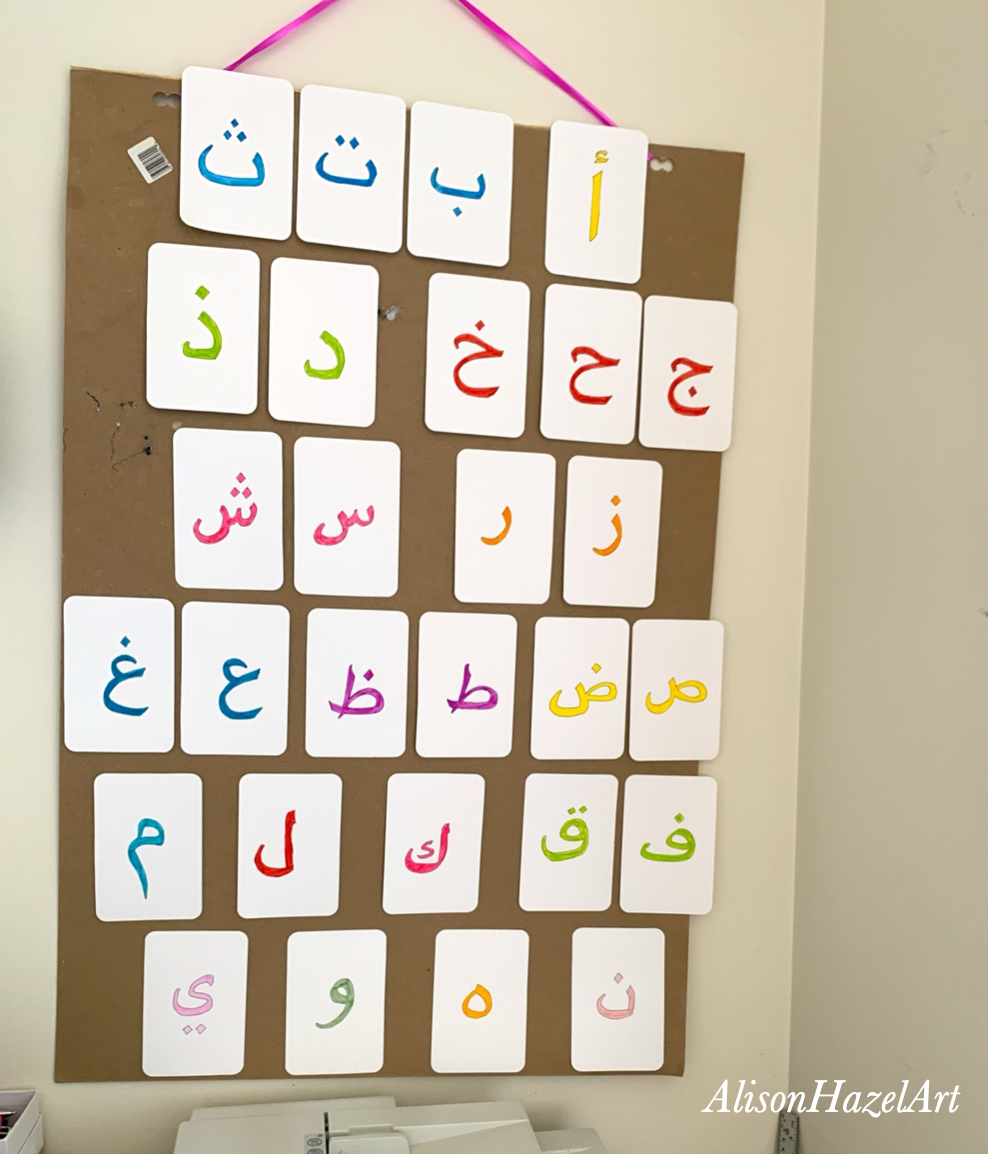 أ ب ت ث
ج ح خ د ذ
ز ر س ش
ص ض ط ظ ع غ
ف ق ك ل م
ن ه و ي
AlisonHazelArt